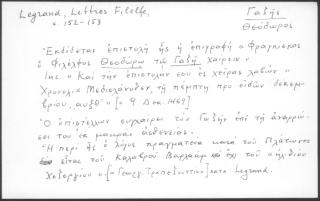 Legrand, Lettres Filelfe,
σ. 152-153
Γαζῆς
Θεόδωρος
Ἐκδίδεται ἐπιστολὴ ἧς ἡ ἐπιγραφὴ "Φραγκίσκος
ὁ Φιλέλφος Θεοδώρῳ τῷ Γαζῇ χαίρειν".
Inc. "Καὶ τὴν ἐπιστολήν σου εἰς χεῖρας λαβὼν"
Χρονολ. "Μεδιολάνοθεν, τῇ πέμπτῃ πρὸ εἰδῶν δεκεμ-
βρίου, αυξθ'" [= 9 Δεκ. 1469]
Ὁ ἐπιστέλλων συγχαίρει τὸν Γαζῆν ἐπὶ τῇ ἀναρρώ-
σει του ἐκ μακρᾶς ἀσθενείας.
Ἡ περὶ ἧς ὁ λόγος πραγματεία κατὰ τοῦ Πλάτωνος
εἶναι τοῦ Καλαβροῦ Βαρλαὰμ καὶ ὄχι τοῦ "ἠλιθίου
[= Γεωργ. Τραπεζουντίου] κατὰ Legrand.